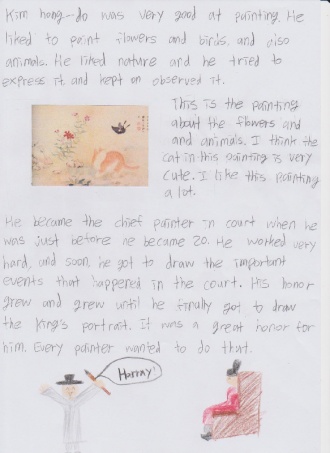 Kim hong-do was very good at painting. He
liked to paint flowers and birds, and also
animals. He liked nature and he tried to
express it, and kept on observed it.
This is the painting
about the flowers and
and animals. I think the
cat in this painting is very
cute. I like this painting
a lot.
He became the chief painter in court when he
was just before he became 20. He worked very
hard, and soon, he got to draw the important
events that happened in the court. His honor
grew and grew until he finally got to draw
the King's portrait. It was a great honor for
him. Every painter wanted to do that.
Horray!